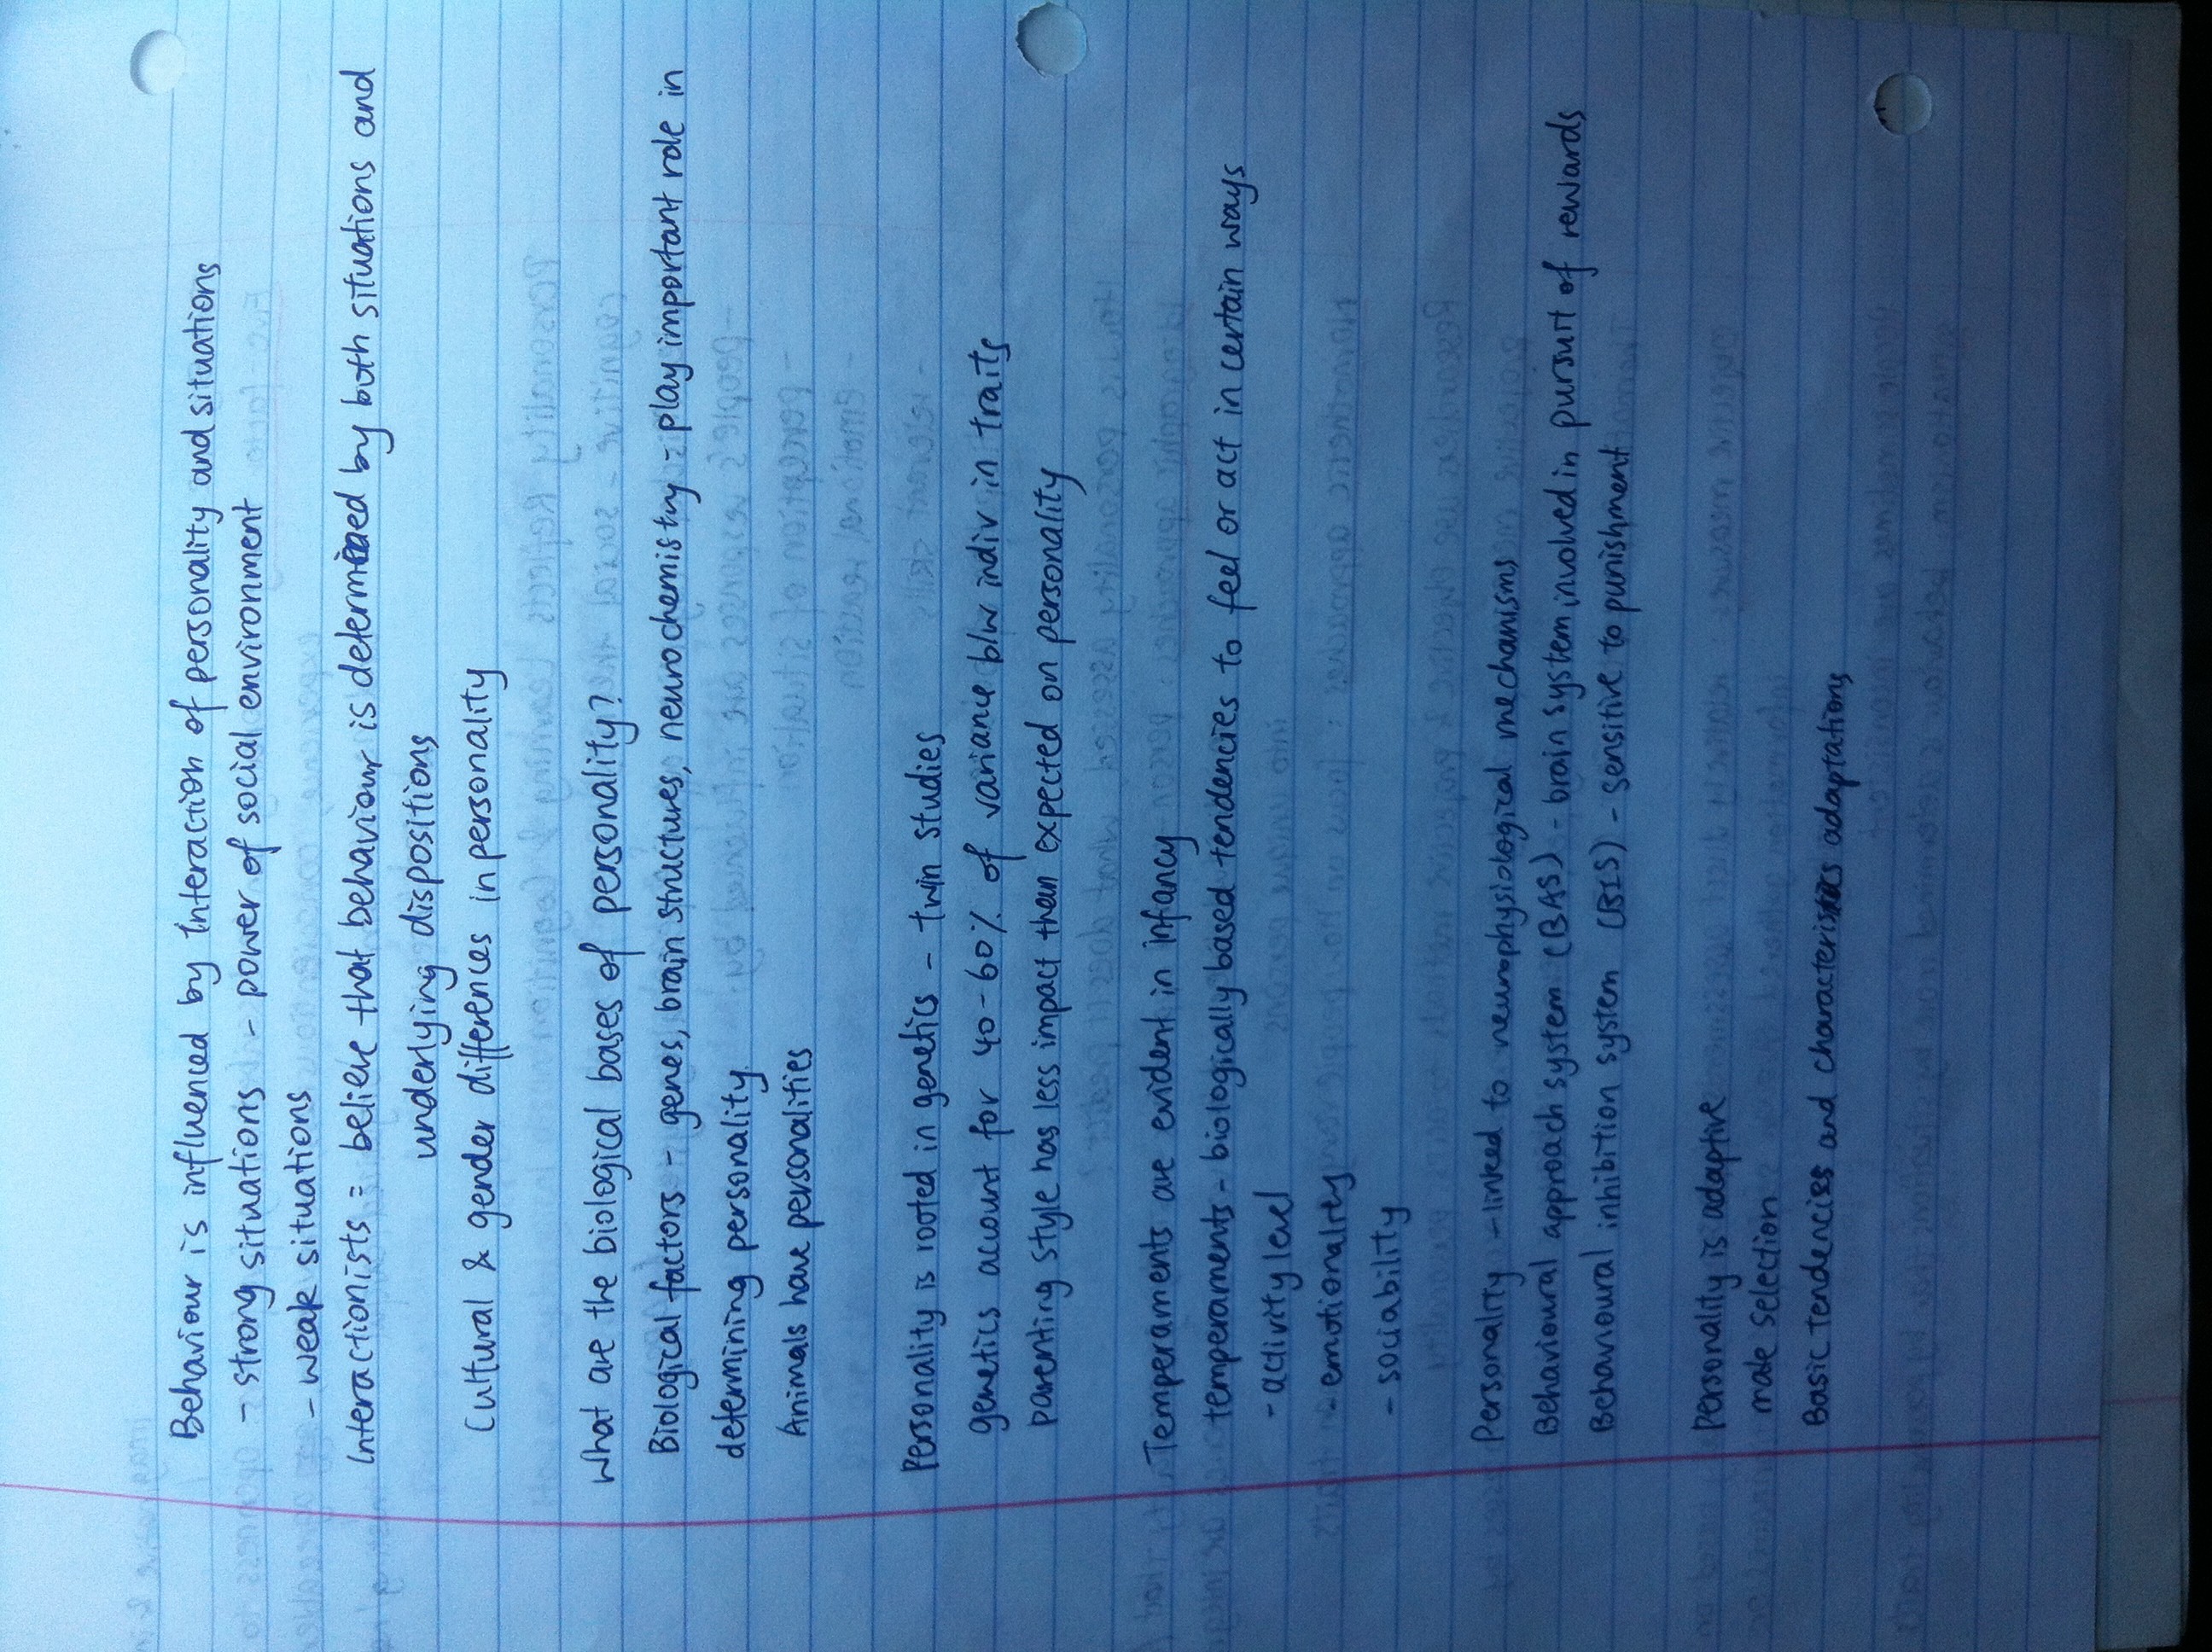 Behaviour is influenced by Interaction of personality and situations
- strong situations - power of social environment
- weak situations
Interactionists = believe that behaviour is determined by both situations and
underlying dispositions
Cultural & gender differences in personality
What are the biological bases of personality?
Biological factors - genes, brain structures, neurochemistry - play important role in
determining personality
Animals have personalities
Personality is rooted in genetics - twin studies
genetics account for 40-60% of variance b/w indiv in traits
parenting style has less impact than expected on personality
Temperaments are evident in infancy
temperaments - biologically based tendencies to feel or act in certain ways
- activity level
- emotionality
- sociability
Personality - linked to neurophysiological mechanisms
Behavioural approach system (BAS) - brain system involved in pursuit of rewards
Behavioural inhibition system (BIS) - sensitive to punishment
Personality is adaptive
mate selection
Basic tendencies and characteristics adaptations